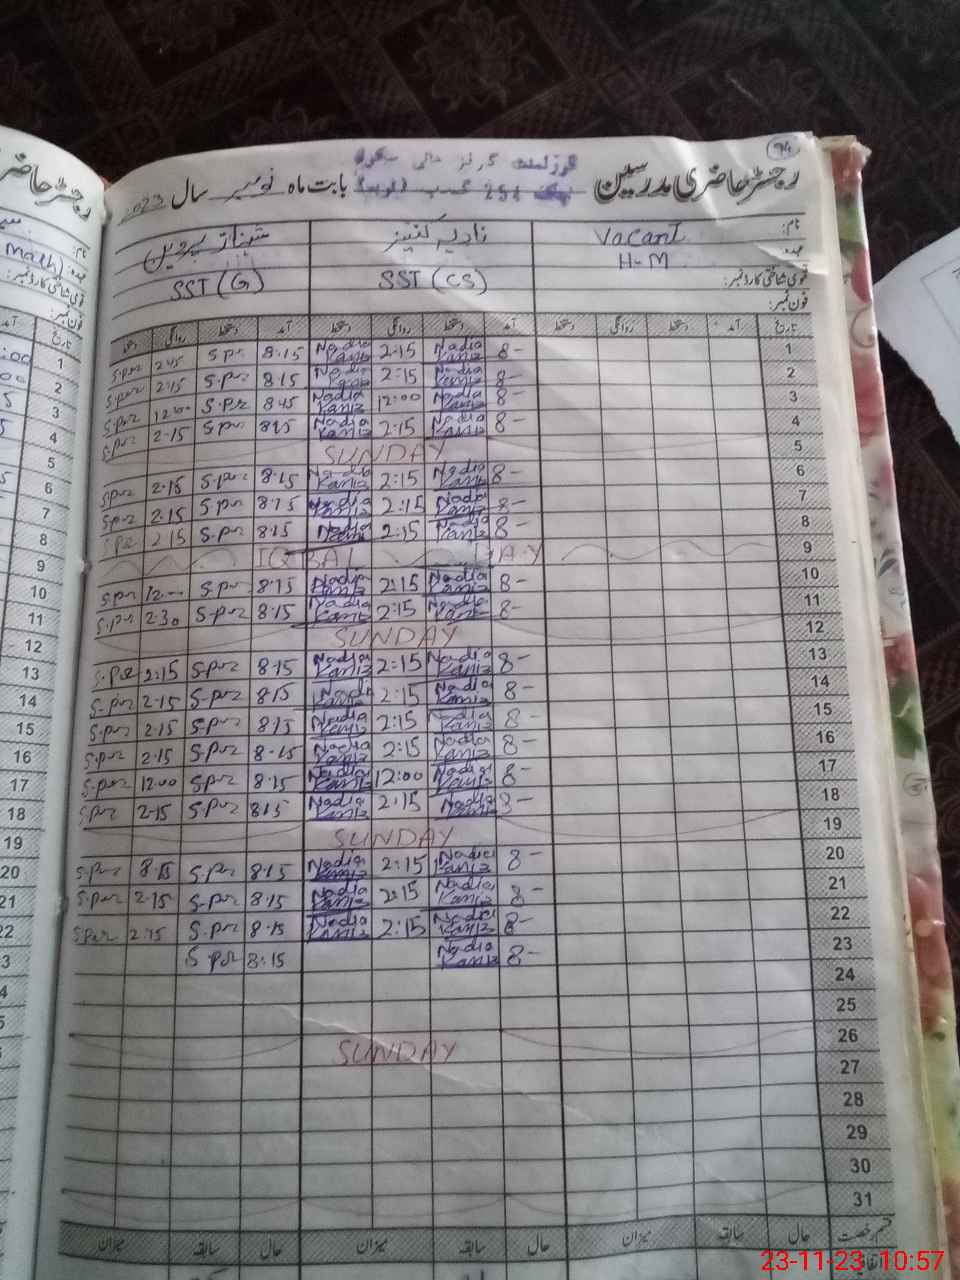 94
رجسٹر حاضری مدرسین گورنمنٹ گرلز ہائی سکول بابت ماہ نومبر سال 2023
254
نام: Vacant نادیہ کنیز شہناز پروین
عہدہ: H-M SST (CS) SST (G)
قومی شناختی کارڈ نمبر:
فون نمبر:
تاریخ آمد دستخط روانگی دستخط آمد دستخط روانگی دستخط آمد دستخط روانگی دستخط
1 8- Nadia Kaniz 2:15 Nadia Kaniz 8.15 S.per
2 8- Nadia Kaniz 2:15 Nadia Kaniz 8.15 S.per 2.15 S.per
3 8- Nadia Kaniz 12:00 Nadia Kaniz S.per 12.00 S.per
4 8- Nadia Kaniz 2:15 Nadia Kaniz 8.15 S.per 2.15 S.per
5 SUNDAY
6 8- Nadia Kaniz 2:15 Nadia Kaniz 8.15 S.per 2.15 S.per
7 8- Nadia Kaniz 2:15 Nadia Kaniz 8.15 S.per 2.15 S.per
8 8- Nadia Kaniz 2:15 Nadia Kaniz 8.15 S.per 2.15 S.per
9 IQBAL DAY
10 8- Nadia Kaniz 2:15 Nadia Kaniz 8.15 S.per 12.00 S.per
11 8- Nadia Kaniz 2:15 Nadia Kaniz 8.15 S.per 2.30 S.per
12 SUNDAY
13 8- Nadia Kaniz 2:15 Nadia Kaniz 8.15 S.per 2:15 S.per
14 8- Nadia Kaniz 2:15 Nadia Kaniz 8.15 S.per 2.15 S.per
15 8- Nadia Kaniz 2:15 Nadia Kaniz 8.15 S.per 2.15 S.per
16 8- Nadia Kaniz 2:15 Nadia Kaniz 8.15 S.per 2.15 S.per
17 8- Nadia Kaniz 12:00 Nadia Kaniz 8.15 S.per 12.00 S.per
18 8- Nadia Kaniz 2:15 Nadia Kaniz 8.15 S.per 2.15 S.per
19 SUNDAY
20 8- Nadia Kaniz 2:15 Nadia Kaniz 8.15 S.per 8.15 S.per
21 8- Nadia Kaniz 2:15 Nadia Kaniz 8.15 S.per 2.15 S.per
22 8- Nadia Kaniz 2:15 Nadia Kaniz 8.15 S.per 2.15 S.per
23 8- Nadia Kaniz 8:15 S.per
24
25
26 SUNDAY
27
28
29
30
31
قسم رخصت حال سابقہ میزان حال سابقہ میزان حال سابقہ میزان
23-11-23 10:57
رجسٹر حاضر
نام:
Math)
قومی شناختی کارڈ نمبر:
فون نمبر:
تاریخ آمد
1
2
3
4
5
6
7
8
9
10
11
12
13
14
15
16
17
18
19
20
21
22